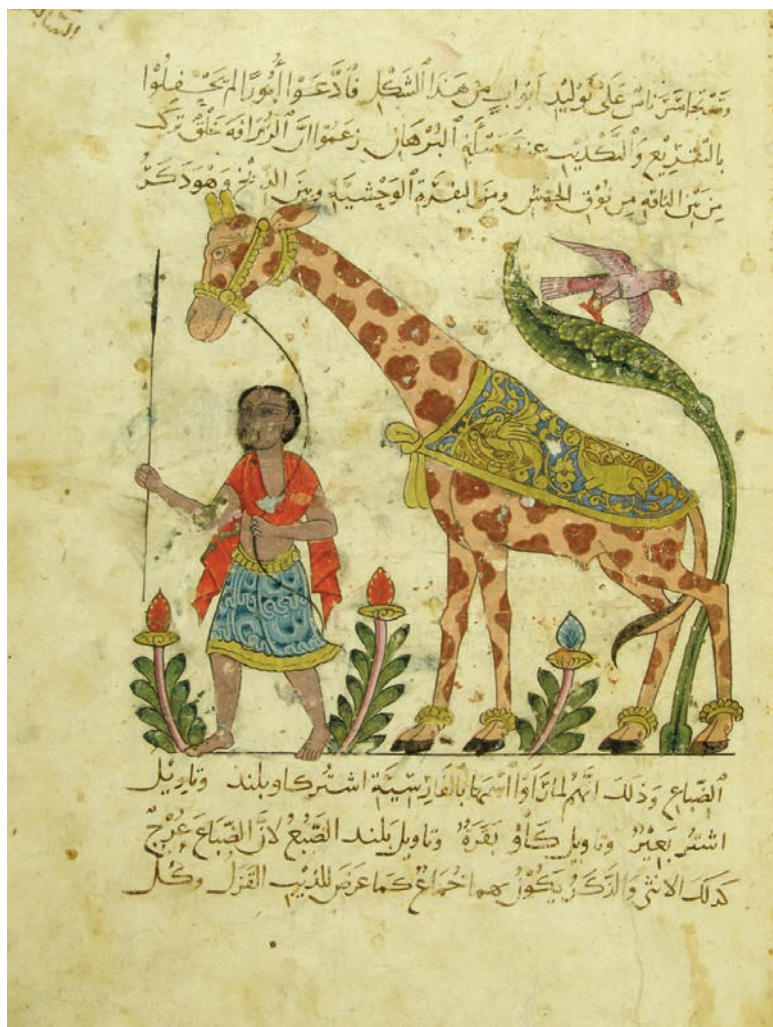 وقد تجاسر ناس على توليد ابواب من هذا الشكل فادعوا أمورًا لم يحفلوا
بالتقريع والتكذيب عند مسئلة البرهان زعموا ان الزرافة خلق تركب
من بين الناقه من نوق الحوش ومن البقرة الوحشية وبين الذيخ وهو ذكر
الضباع وذلك انهم لما رأوا اسمها بالفارسية اشتر كاو بلند وتاويل
اشتر بعير وتاويل كاو بقرة وتاويل بلند الضبع لان الضباع عرج
كذلك الانثى والذكر يكون بهما خماع كما عرض للذيب القزل وكل